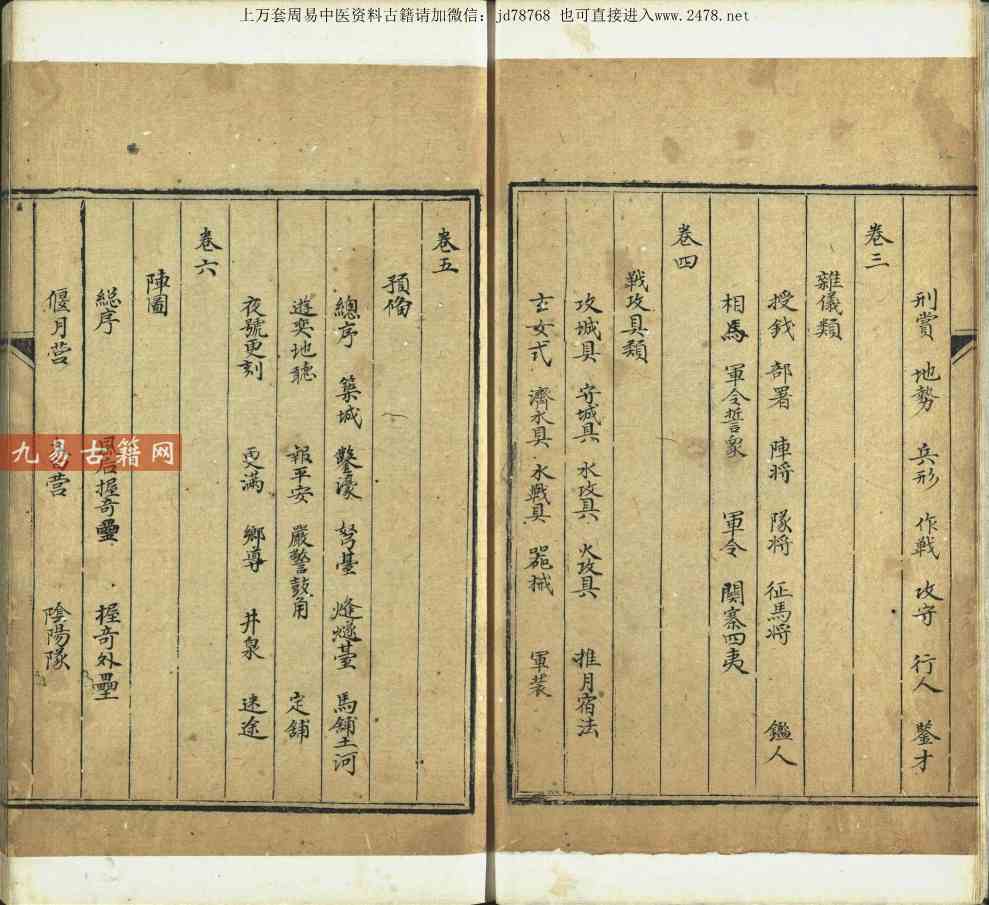 上万套周易中医资料古籍请加微信：jd78768 也可直接进入www.2478.net
刑賞 地勢 兵形 作戰 攻守 行人 鑒才
卷三
雜儀類
授鉞 部署 陣将 隊将 征馬将 鑑人
相馬 軍令誓衆 軍令 関塞四夷
卷四
戰攻具類
攻城具 守城具 水攻具 火攻具 推月宿法
玄女式 濟水具 水戰具 器械 軍裝
卷五
預備
總序 築城 鑿濠 弩臺 烽燧臺 馬舖土河
遊奕地聽 報平安 嚴警鼓角 定舖
夜號更刻 更滿 鄉導 井泉 迷途
卷六
陣圖
総序 后握奇壘 握奇外壘
偃月营 营 陰陽隊
九易古籍网